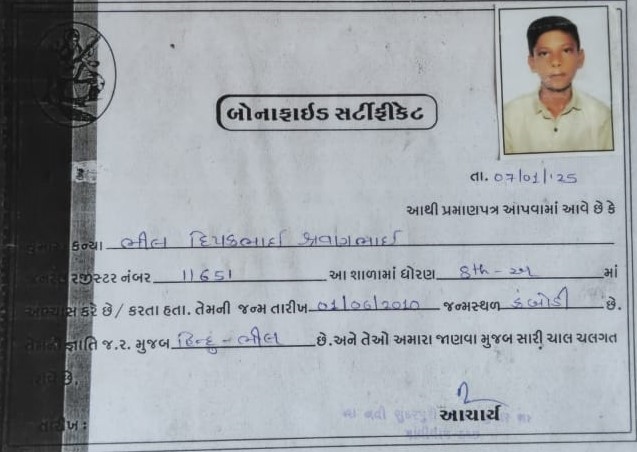 બોનાફાઇડ સર્ટીફીકેટ
તા. 07/01/'25
આથી પ્રમાણપત્ર આપવામાં આવે છે કે
કન્યા ભીલ દિપકભાઈ શ્રવણભાઈ
રજીસ્ટર નંબર 11651 આ શાળામાં ધોરણ 8th - અ માં
અભ્યાસ કરે છે / કરતા હતા. તેમની જન્મ તારીખ 01/06/2010 જન્મસ્થળ કંબોડી છે.
તેમની જ્ઞાતિ જ.ર. મુજબ હિન્દુ - ભીલ છે.અને તેઓ અમારા જાણવા મુજબ સારી ચાલ ચલગત
છે.
આચાર્ય
તારીખ :